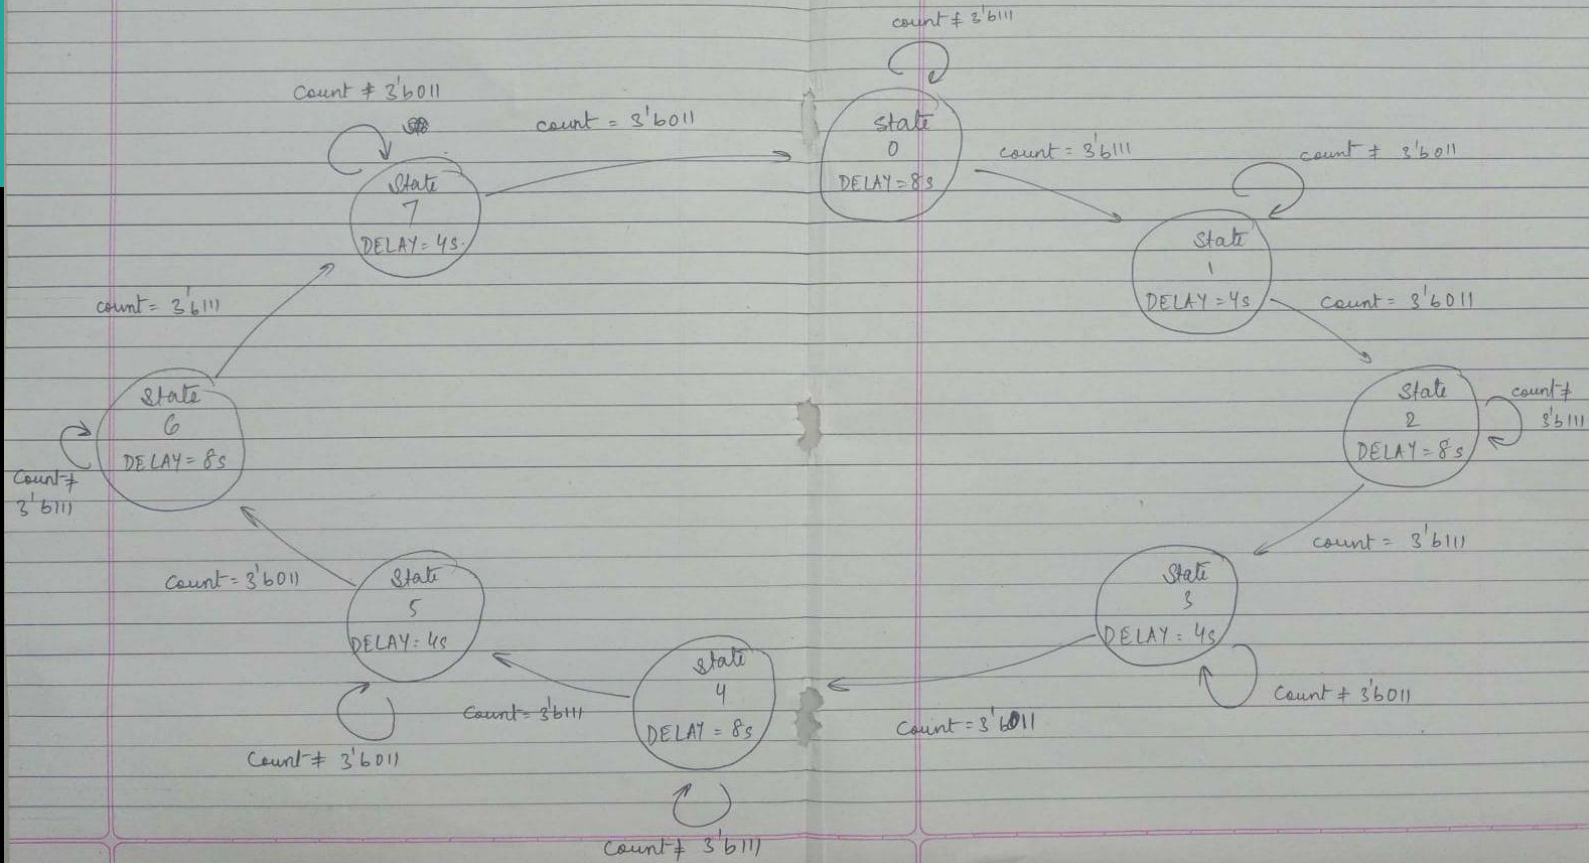 count ≠ 3'b111
State
0
DELAY = 8s
count = 3'b111
count ≠ 3'b011
State
1
DELAY = 4s
count = 3'b011
State
2
DELAY = 8s
count ≠
3'b111
count = 3'b111
State
3
DELAY = 4s
Count ≠ 3'b011
Count = 3'b011
State
4
DELAY = 8s
Count ≠ 3'b111
Count = 3'b111
State
5
DELAY = 4s
Count ≠ 3'b011
Count = 3'b011
State
6
DELAY = 8s
Count ≠
3'b111
count = 3'b111
State
7
DELAY = 4s.
Count ≠ 3'b011
count = 3'b011